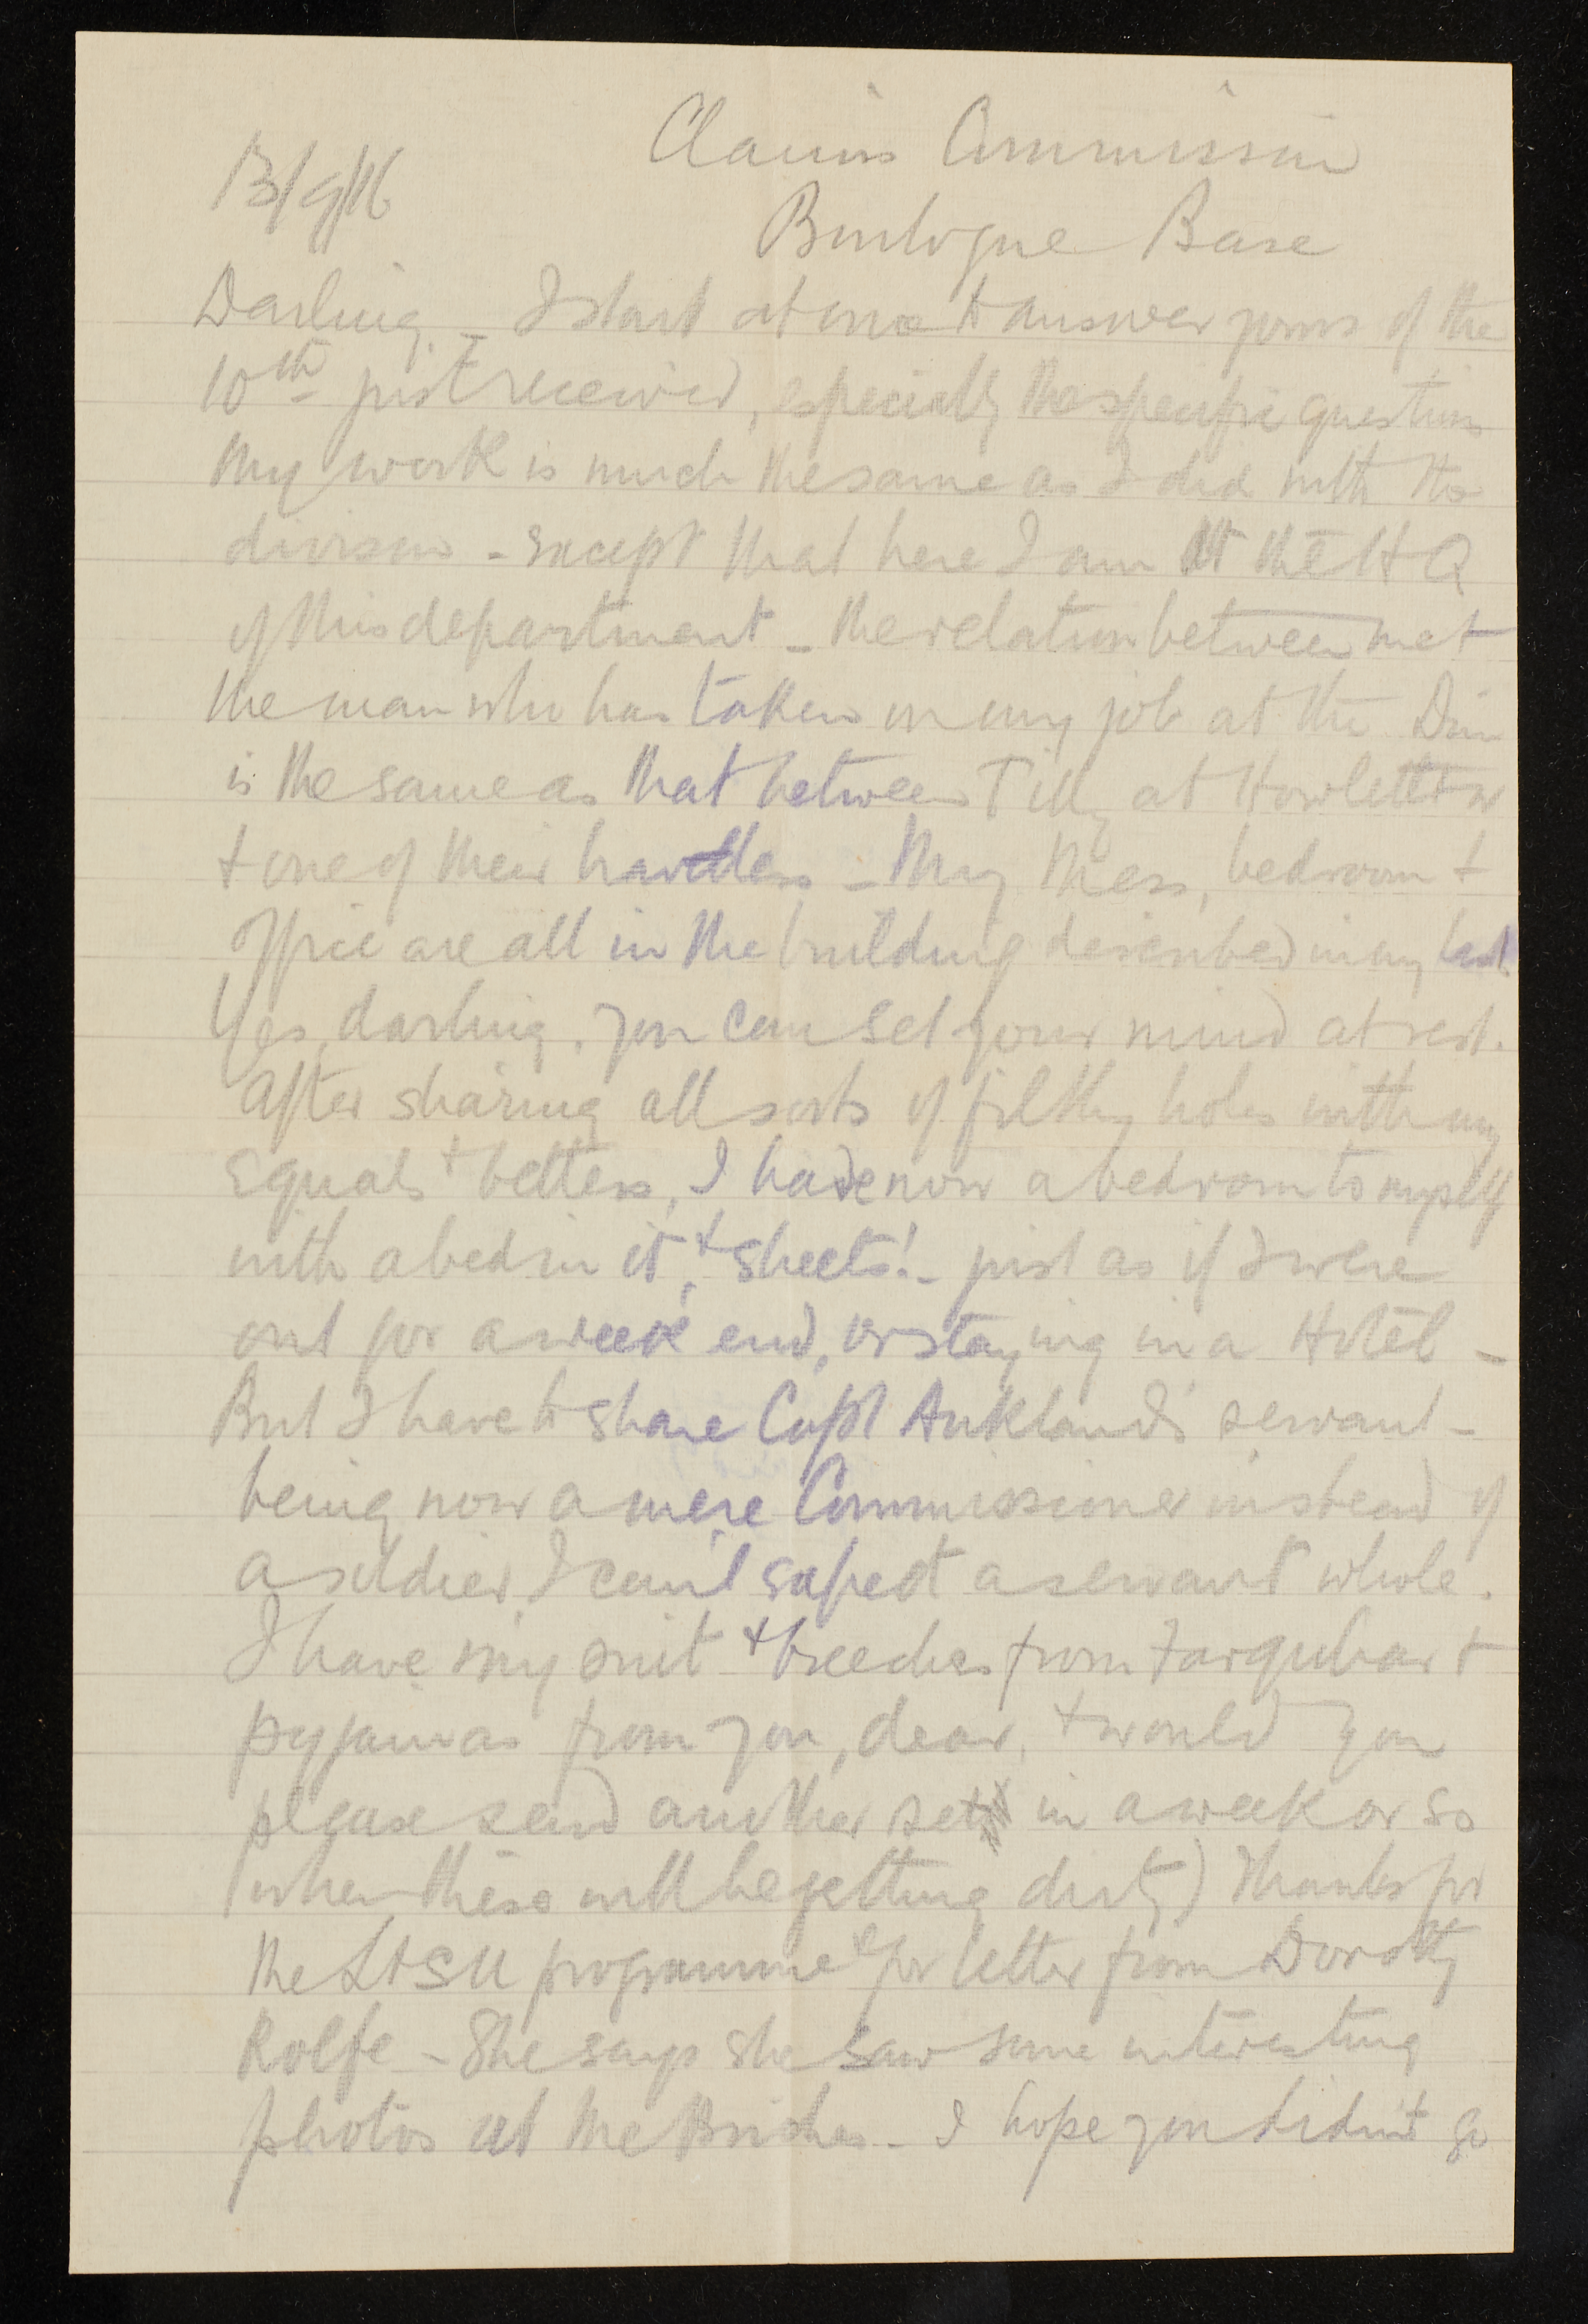 13/9/16
Claims Commission
Boulogne Base
Darling – I start at once to answer yours of the
10th just received, especially the specific questions
My work is much the same as I did with the
division – except that here I am at the HQ
of this department – the relation between me +
the man who has taken on my job at the Divn
is the same as that between Tilly at Howletts
+ one of their travellers – My Mess, bedroom +
Office are all in the building described in my last.
Yes, darling, you can set your mind at rest.
After sharing all sorts of filthy holes with my
equals + betters, I have now a bedroom to myself
with a bed in it, + sheets! – just as if I were
out for a week end, or staying in a Hotel –
But I have to share Capt Auklands' servant –
being now a mere Commissioner instead of
a soldier, I can't expect a servant whole.
I have my suit + breeches from Farquhar +
pyjamas from you, dear, + would you
please send another set in a week or so
(when these will be getting dirty) Thanks for
the programme & for letter from Dorothy
Rolfe – She says she saw some interesting
photos at the – I hope you didn't go